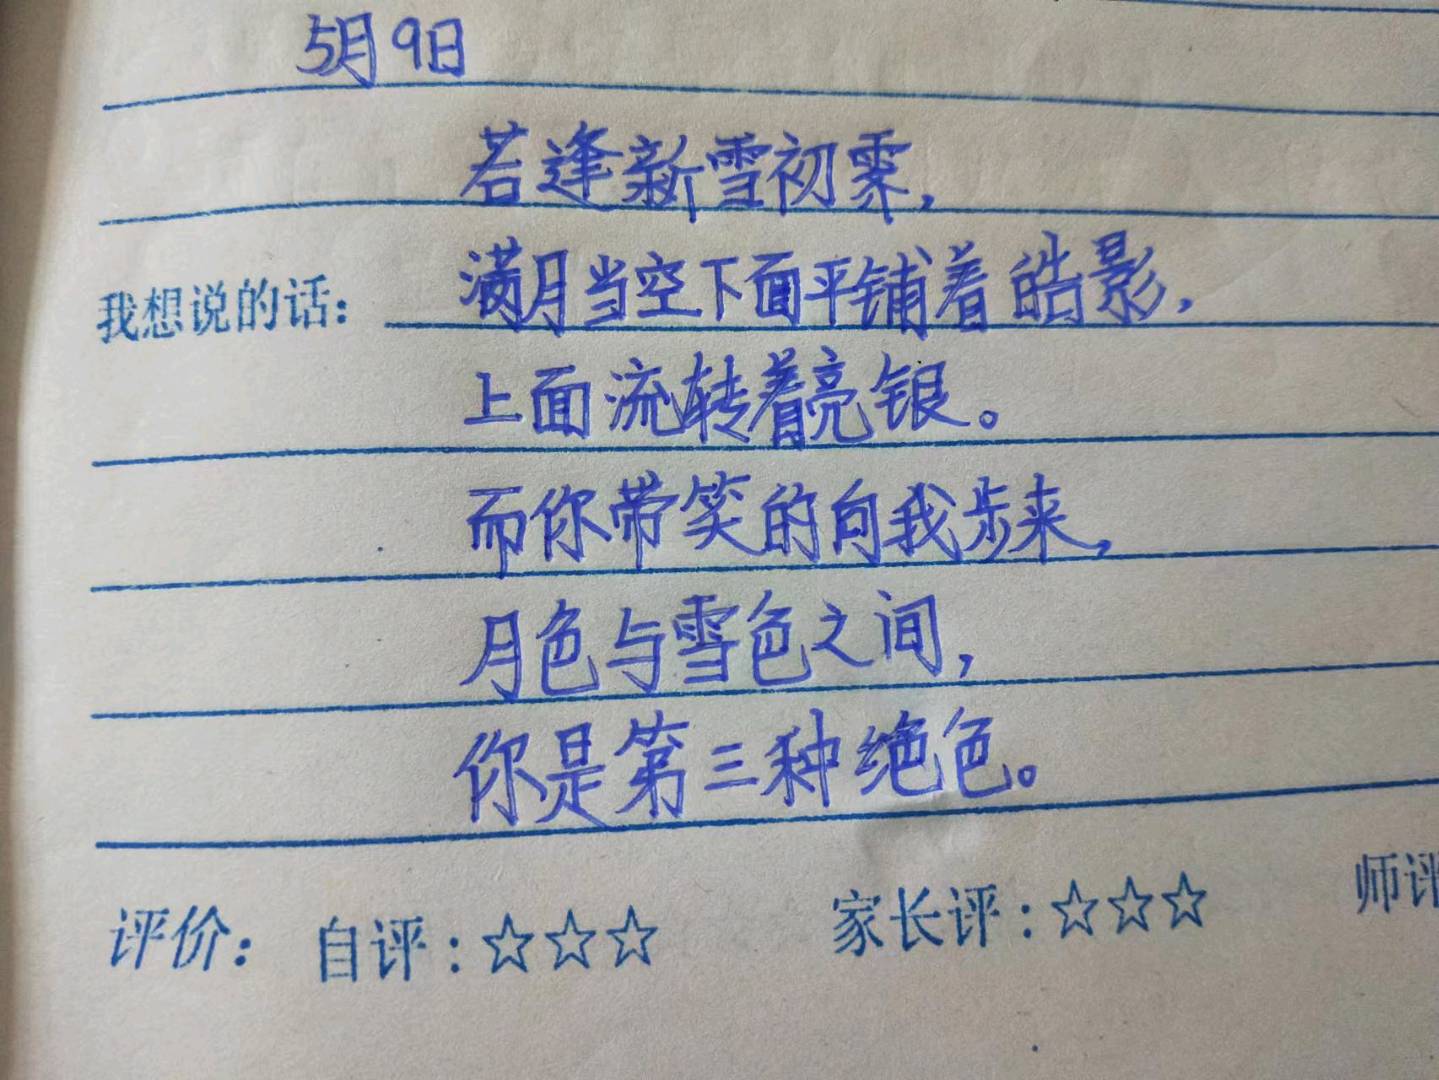 5月9日
若逢新雪初霁，
满月当空下面平铺着皓影，
我想说的话：
上面流转着亮银。
而你带笑的向我步来，
月色与雪色之间，
你是第三种绝色。
评价： 自评：☆☆☆ 家长评：☆☆☆ 师评